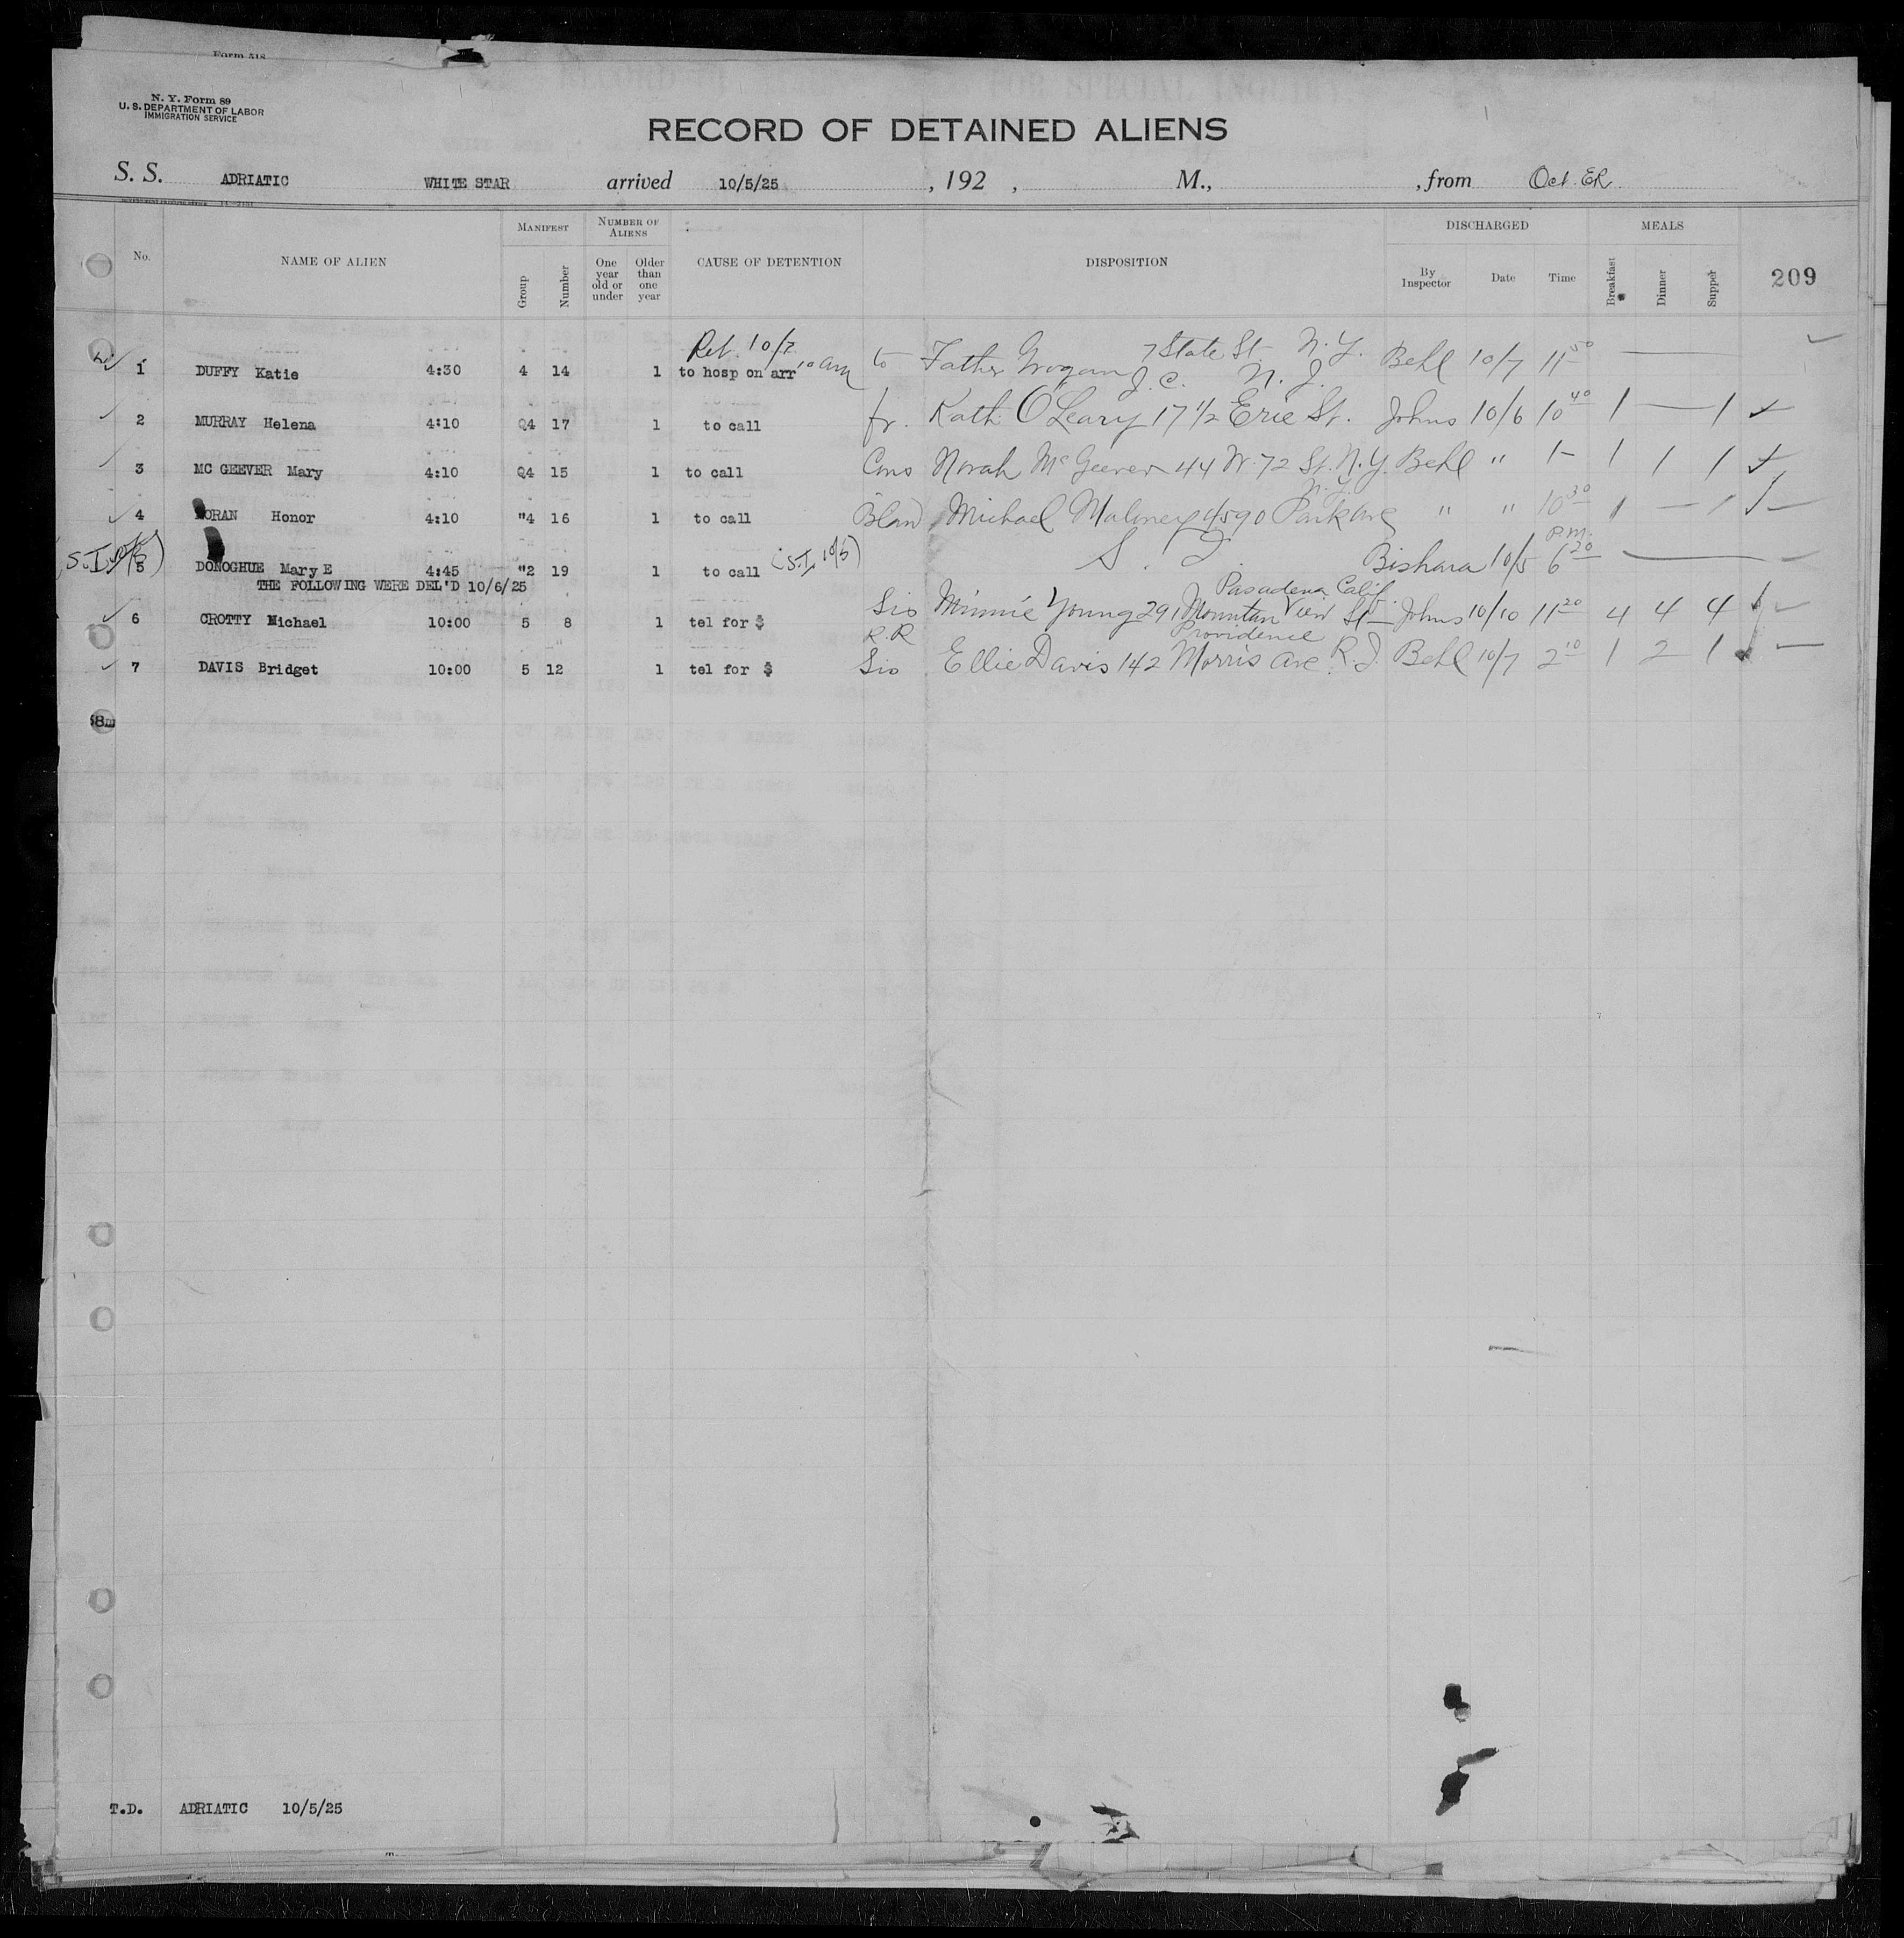 Form 518
N. Y. Form 89
U. S. DEPARTMENT OF LABOR
IMMIGRATION SERVICE
RECORD OF DETAINED ALIENS
S. S. ADRIATIC WHITE STAR arrived 10/5/25 , 192 , M., , from Oct. ER.
No. NAME OF ALIEN MANIFEST Group Number NUMBER OF ALIENS One year old or under Older than one year CAUSE OF DETENTION DISPOSITION DISCHARGED By Inspector Date Time MEALS Breakfast Dinner Supper 209
Ret. 10/7 10 am 7 State St. N.Y.
1 DUFFY Katie 4:30 4 14 1 to hosp on arr to Father Grogan Behl 10/7 11 50
J. C. N. J.
2 MURRAY Helena 4:10 Q4 17 1 to call fr. Kath. O'Leary 17 1/2 Erie St. Johns 10/6 10 40 1 — 1
3 MC GEEVER Mary 4:10 Q4 15 1 to call Cous Norah McGeever 44 W. 72 St. N.Y. Behl " 1- 1 1 1
N.Y.
4 MORAN Honor 4:10 "4 16 1 to call Michael Maloney 4590 Park Ave " " 10 30 1 — 1
(S.I. 10/5) 5 DONOGHUE Mary E 4:45 "2 19 1 to call (S.I. 10/5) S. I. Bishara 10/5 6 20 P.M.
THE FOLLOWING WERE DEL'D 10/6/25
Pasadena Calif.
6 CROTTY Michael 10:00 5 8 1 tel for $ Sis Minnie Young 291 Mountain View St Johns 10/10 11 20 4 4 4
R.R Providence
7 DAVIS Bridget 10:00 5 12 1 tel for $ Sis Ellie Davis 142 Morris Ave. R.I. Behl 10/7 2 10 1 2 1
8m
T.D. ADRIATIC 10/5/25